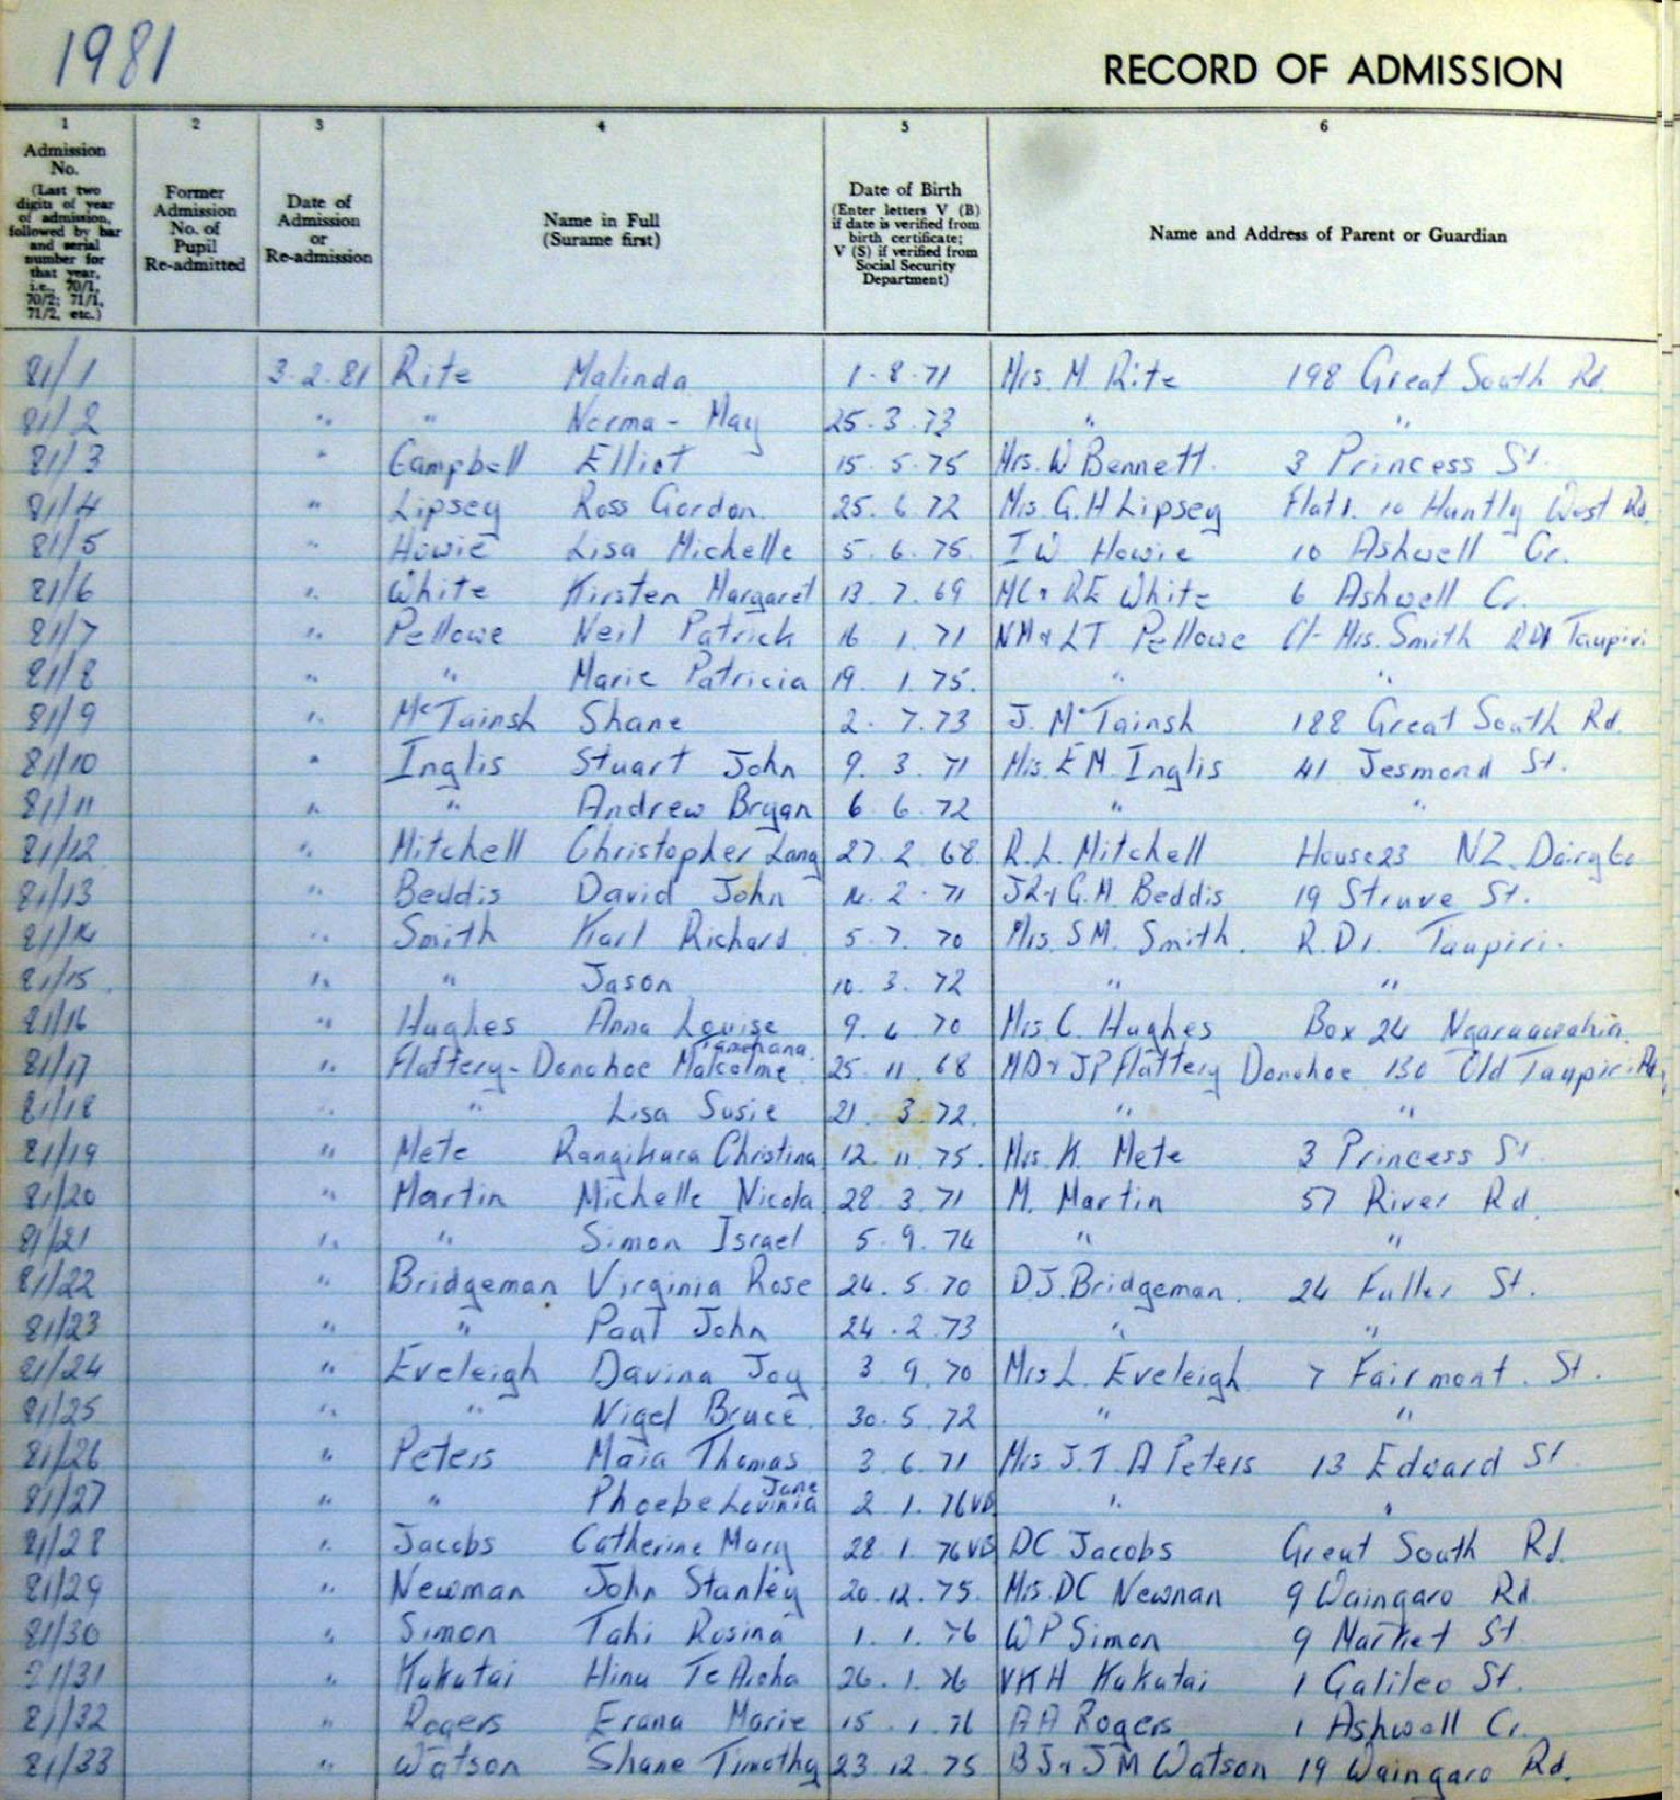 1981
RECORD OF ADMISSION
1 2 3 4 5 6
Admission
No.
(Last two
digits of year
of admission,
followed by bar
and serial
number for
that year,
i.e., 70/1,
70/2; 71/1,
71/2, etc.)
Former
Admission
No. of
Pupil
Re-admitted
Date of
Admission
or
Re-admission
Name in Full
(Surame first)
Date of Birth
(Enter letters V (B)
if date is verified from
birth certificate;
V (S) if verified from
Social Security
Department)
Name and Address of Parent or Guardian
81/1 3.2.81 Rite Malinda 1.8.71 Mrs. M. Rite 198 Great South Rd.
81/2 " " Norma-May 25.3.73 " "
81/3 " Campbell Elliot 15.5.75 Mrs. W Bennett. 3 Princess St.
81/4 " Lipsey Ross Gordon. 25.6.72 Mrs. G.H Lipsey Flat 1. 10 Huntly West Rd.
81/5 " Howie Lisa Michelle 5.6.75. I W Howie 10 Ashwell Cr.
81/6 " White Kirsten Margaret 13.7.69 MC & RE White 6 Ashwell Cr.
81/7 " Pellowe Neil Patrick 16 1.71 NM & LT Pellowe C/- Mrs. Smith RD1 Taupiri
81/8 " " Marie Patricia 19.1.75. " "
81/9 " McTainsh Shane 2.7.73 J. McTainsh 188 Great South Rd.
81/10 " Inglis Stuart John 9.3.71 Mrs. E M. Inglis 41 Jesmond St.
81/11 " " Andrew Bryan 6.6.72 " "
81/12 " Mitchell Christopher Lang 27.2.68. R.L. Mitchell House 23 NZ. Dairy Co
81/13 " Beddis David John 14.2.71 JR & G.M. Beddis 19 Struve St.
81/14 " Smith Karl Richard 5.7.70 Mrs. SM. Smith. R.D1. Taupiri.
81/15 " " Jason 10.3.72 " "
81/16 " Hughes Anna Louise 9.4.70 Mrs C. Hughes Box 24 Ngaruawahia.
81/17 " Flattery-Donohoe Malcolme Tamehana. 25.11.68 MD & JP Flattery Donohoe 130 Old Taupiri Rd.
81/18 " " Lisa Susie 21.3.72. " "
81/19 " Mete Rangikura Christina 12.11.75. Mrs. K. Mete 3 Princess St
81/20 " Martin Michelle Nicola 28.3.71 M. Martin 57 River Rd.
81/21 " " Simon Israel 5.9.74 " "
81/22 " Bridgeman Virginia Rose 24.5.70 D.J. Bridgeman. 24 Fuller St.
81/23 " " Paul John 24.2.73 " "
81/24 " Eveleigh Davina Joy 3 9.70 Mrs L. Eveleigh 7 Fairmont. St.
81/25 " " Nigel Bruce. 30.5.72 " "
81/26 " Peters Maia Thomas 3.6.71 Mrs J.T. A Peters 13 Edward St
81/27 " " Phoebe Lovinia Jane 2.1.76 VB " "
81/28 " Jacobs Catherine Mary 28.1.76 VB DC Jacobs Great South Rd.
81/29 " Newman John Stanley 20.12.75. Mrs. DC Newnan 9 Waingaro Rd
81/30 " Simon Tahi Rosina 1.1.76 W P Simon 9 Market St
81/31 " Kukutai Hinu Te Aroha 26.1.76 VKH Kukutai 1 Galileo St.
81/32 " Rogers Erana Marie 15.1.76 A A Rogers 1 Ashwell Cr.
81/33 " Watson Shane Timothy 23.12.75 BJ & JM Watson 19 Waingaro Rd.